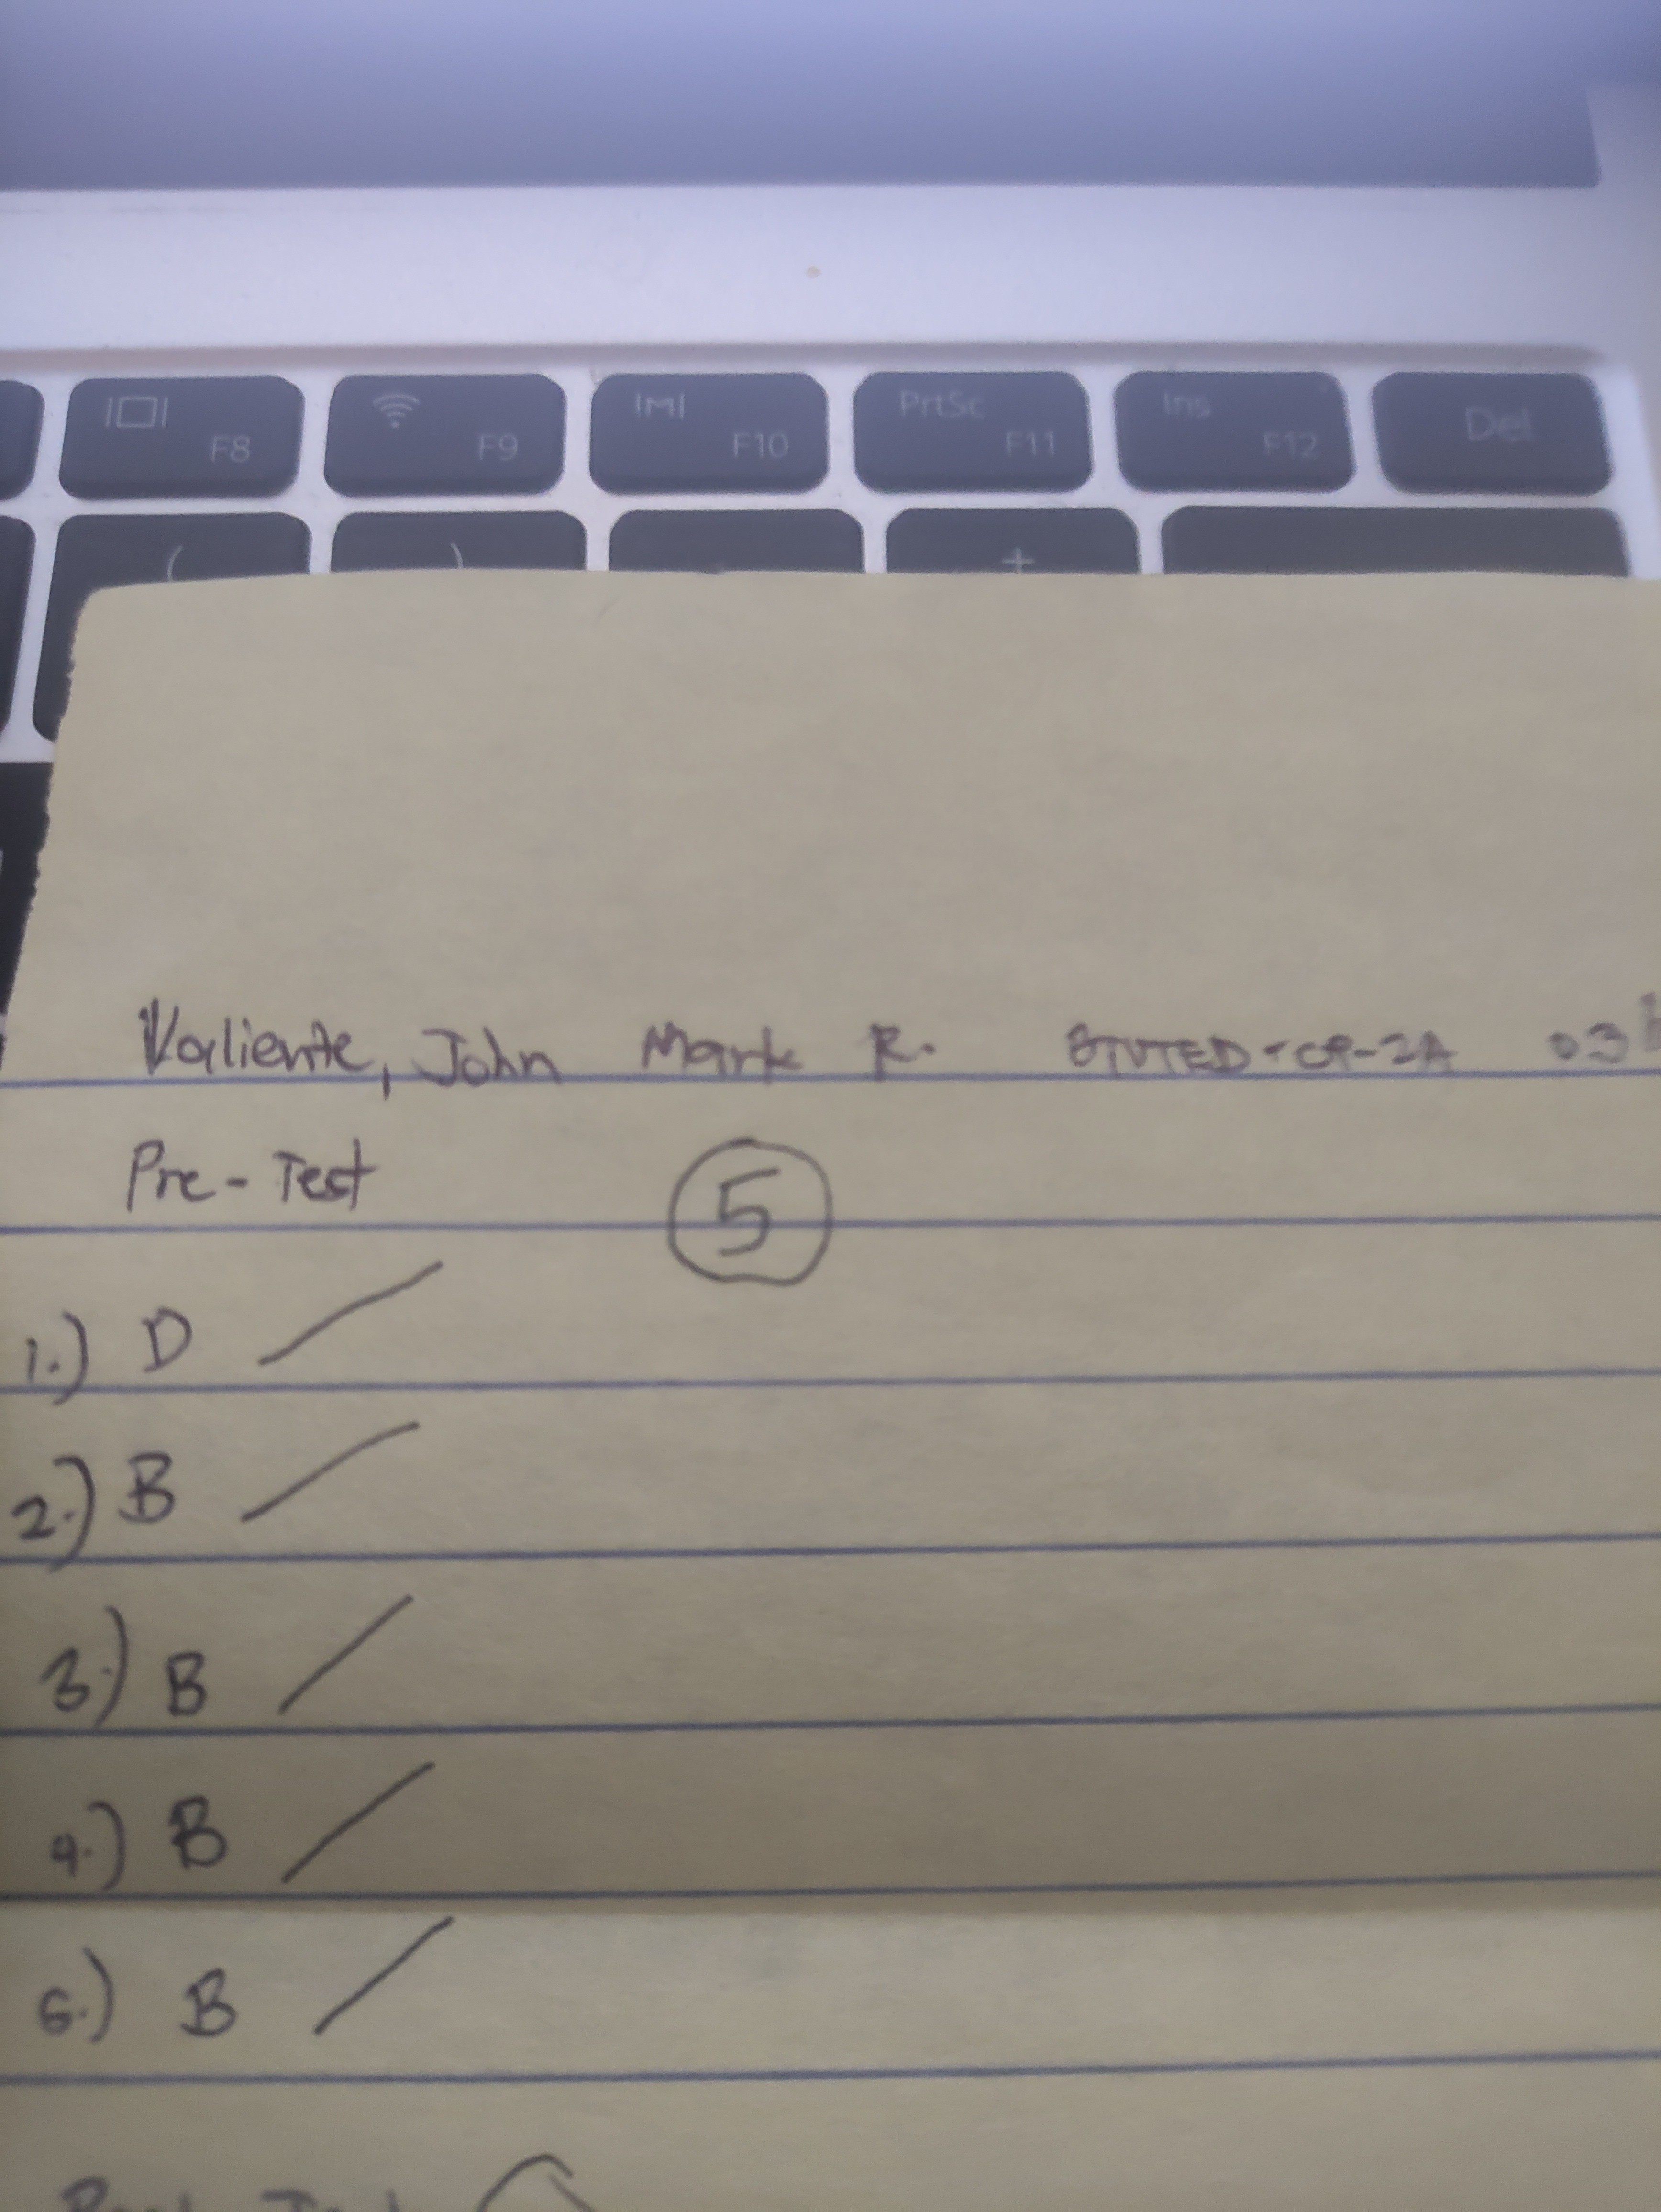 F8 F9 F10 PrtSc F11 Ins F12 Del
( ) +
Valiente, John Mark R. BTVTED-CP-2A 03
Pre-Test 5
1.) D /
2.) B /
3.) B /
4.) B /
5.) B /